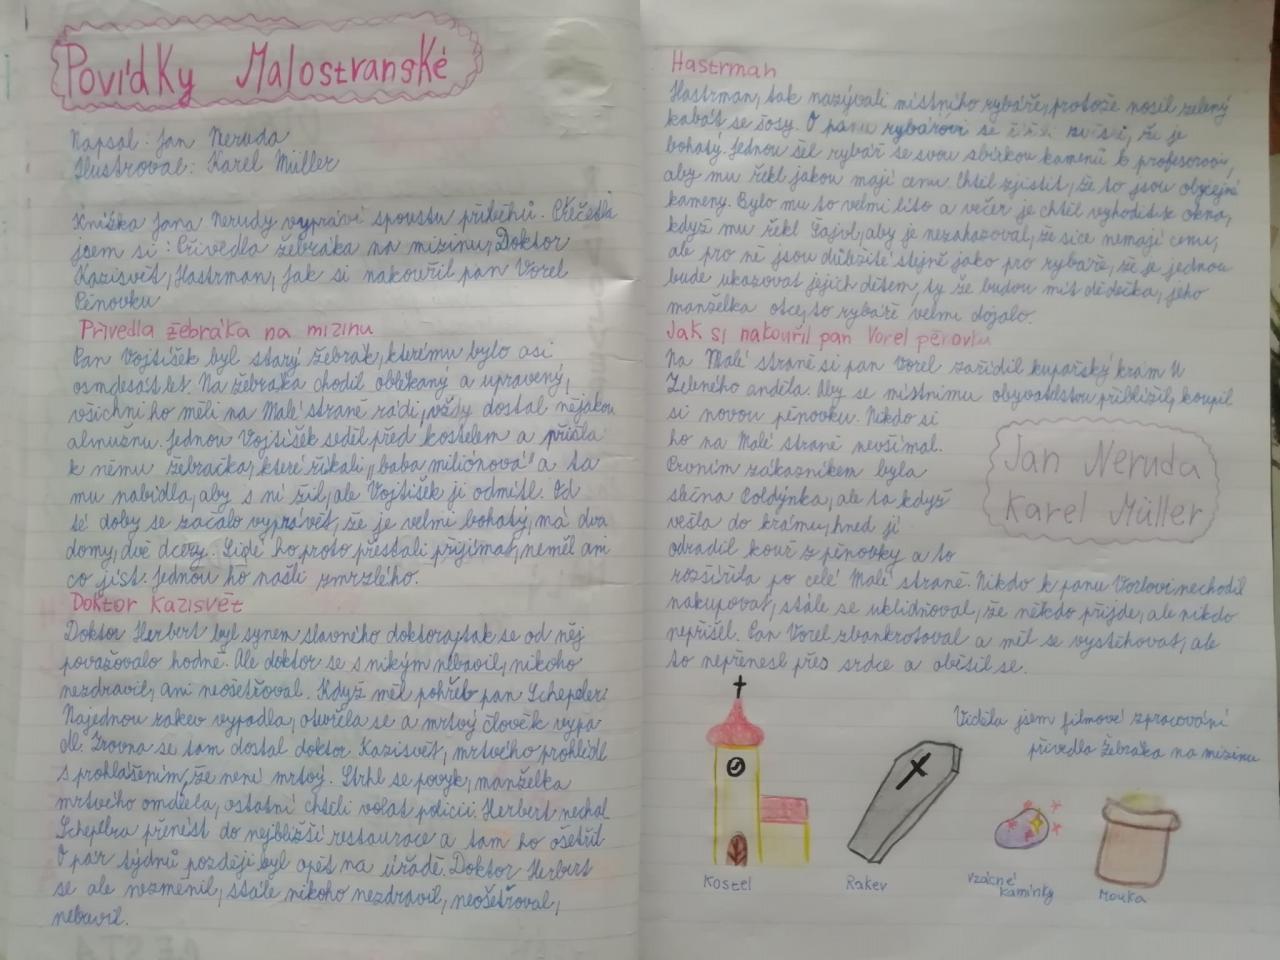 Povídky Malostranské
Napsal: Jan Neruda
Ilustroval: Karel Müller
Knížka Jana Nerudy vypráví spoustu příběhů. Přečetla
jsem si: Přivedla žebráka na mizinu, Doktor
Kazisvět, Hastrman, Jak si nakouřil pan Vorel
Pěnovku
Přivedla žebráka na mizinu
Pan Vojtíšek byl starý žebrák, kterému bylo asi
osmdesát let. Na žebráka chodil oblékaný a upravený,
všichni ho měli na Malé straně rádi, vždy dostal nějakou
almužnu. Jednou Vojtíšek seděl před kostelem a přišla
k němu žebračka, které říkali "baba miliónová" a ta
mu nabídla, aby s ní žil, ale Vojtíšek ji odmítl. Od
té doby se začalo vyprávět, že je velmi bohatý, má dva
domy, dvě dcery. Lidé ho proto přestali přijímat, neměl ani
co jíst. Jednou ho našli zmrzlého.
Doktor Kazisvět
Doktor Herbert byl synem slavného doktora, tak se od něj
považovalo hodně. Ale doktor se s nikým nebavil, nikoho
nezdravil, ani neošetřoval. Když měl pohřeb pan Schepeler:
Najednou rakev vypadla, otevřela se a mrtvý člověk vypa
dl. Zrovna se tam dostal doktor Kazisvět, mrtvého prohlédl
s prohlášením, že není mrtvý. Strhl se povyk, manželka
mrtvého omdlela, ostatní chtěli volat policii. Herbert nechal
Schepelra přenést do nejbližší restaurace a tam ho ošetřil
O pár týdnů později byl opět na úřadě. Doktor Herbert
se ale nezměnil, stále nikoho nezdravil, neošetřoval,
nebavil.
Hastrman
Hastrman, tak nazývali místního rybáře, protože nosil zelený
kabát se šosy. O panu rybářovi se že je
bohatý. Jednou šel rybář se svou sbírkou kamenů k profesorovi,
aby mu řekl jakou mají cenu. Chtěl zjistit, že to jsou obyčejné
kameny. Bylo mu to velmi líto a večer je chtěl vyhodit z okna,
když mu řekl Šajvl, aby je nezahazoval, že sice nemají cenu,
ale pro ně jsou důležité stejně jako pro rybáře, že je jednou
bude ukazovat jejich dětem, ty že budou mít dědečka, jeho
manželka otce, to rybáře velmi dojalo.
Jak si nakouřil pan Vorel pěnovku
Na Malé straně si pan Vorel zařídil kupařský krám U
Zeleného anděla. Aby se místnímu obyvatelstvu přiblížil, koupil
si novou pěnovku. Nikdo si
ho na Malé straně nevšímal.
Prvním zákazníkem byla
slečna Poldýnka, ale ta když
vešla do krámu, hned jí
odradil kouř z pěnovky a to
rozšířila po celé Malé straně. Nikdo k panu Vorlovi nechodil
nakupovat, stále se uklidňoval, že někdo přijde, ale nikdo
nepřišel. Pan Vorel zbankrotoval a měl se vystěhovat, ale
to nepřenesl přes srdce a oběsil se.
Jan Neruda
Karel Müller
Viděla jsem filmové zpracování
přivedla žebráka na mizinu
Kostel
Rakev
Vzácné
kamínky
Mouka